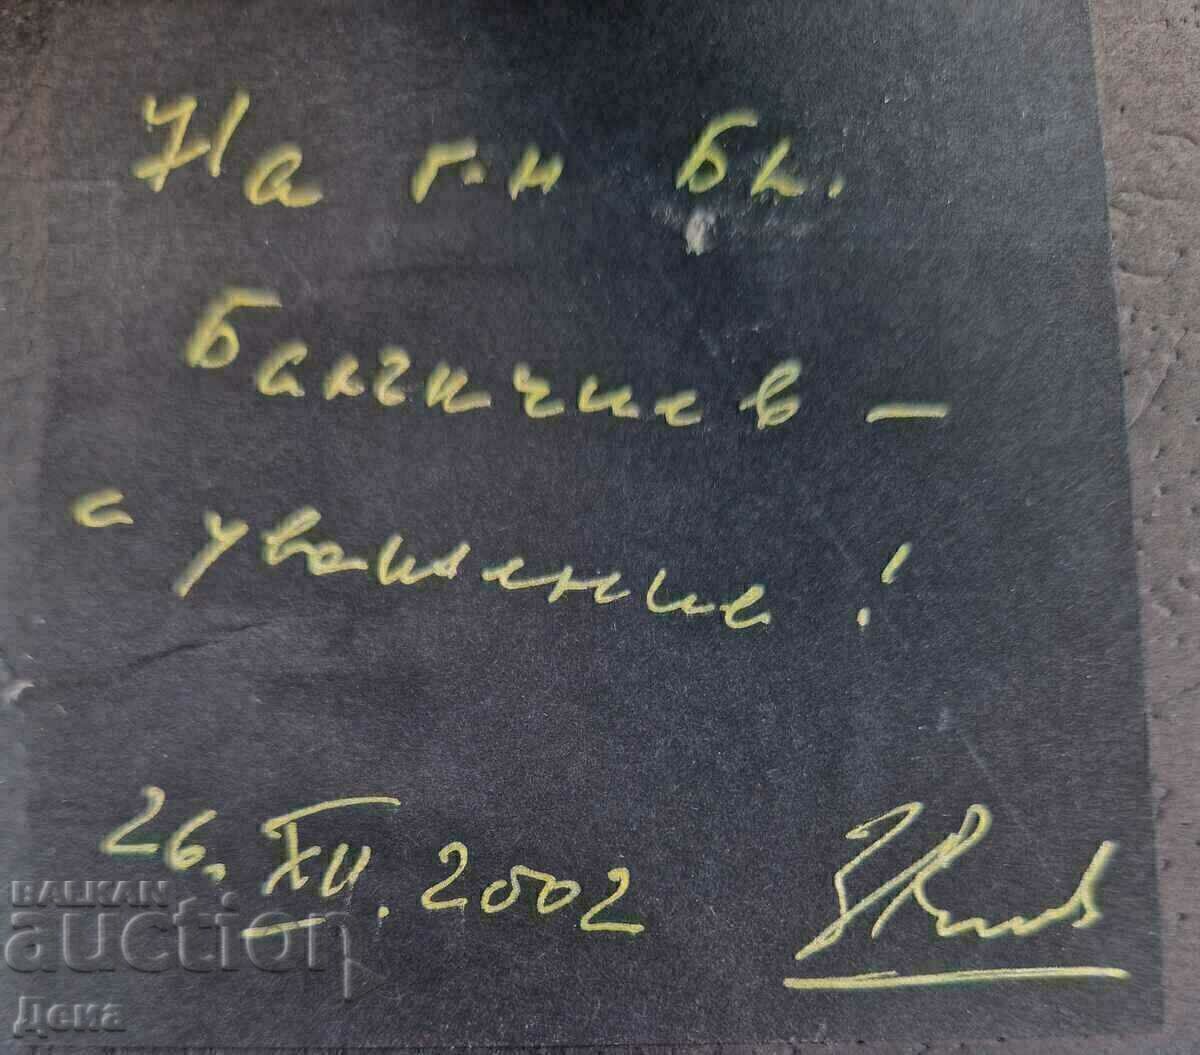 На г-н Бл.
Балчичиев –
с уважение!
26. XII. 2002
BALKAN
auction
Дена